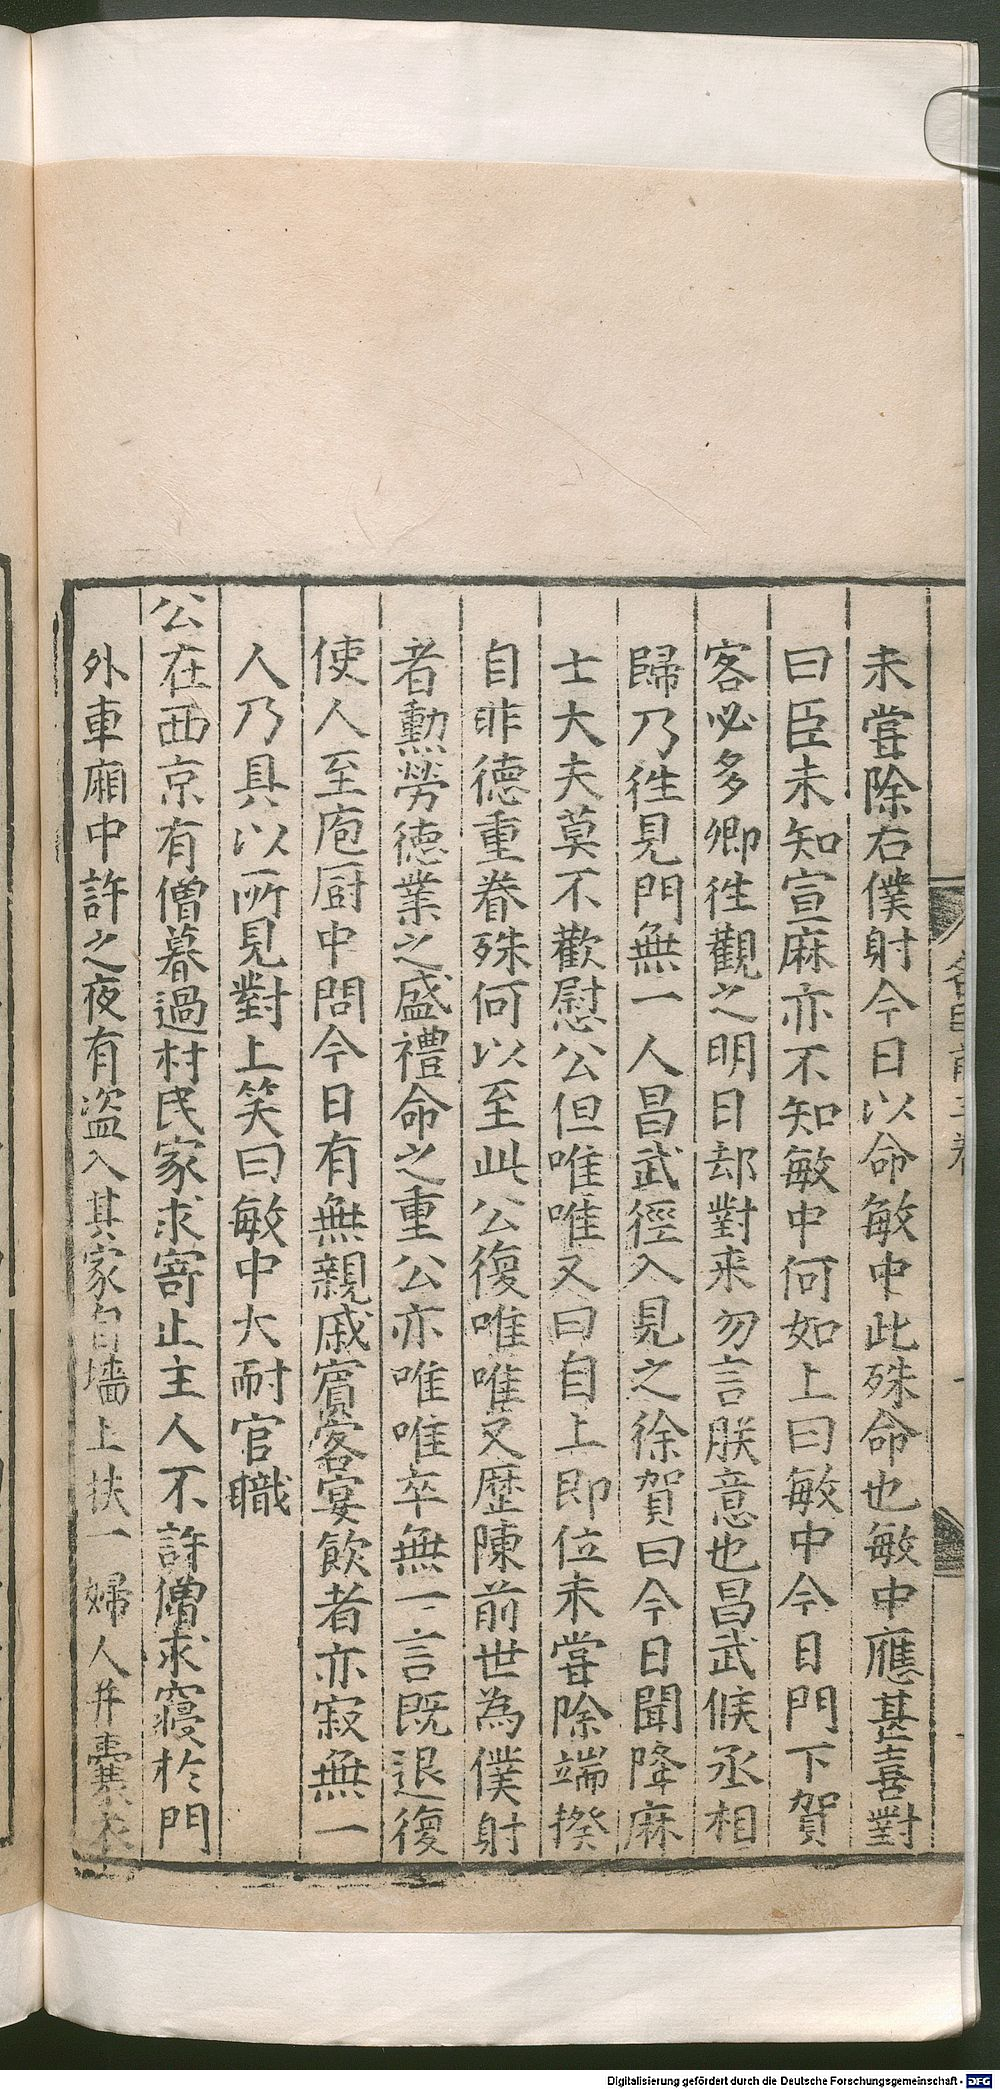 未嘗除右僕射今日以命敏中此殊命也敏中應甚喜對
曰臣未知宣麻亦不知敏中何如上曰敏中今日門下賀
客必多卿徃觀之明日却對来勿言朕意也昌武候丞相
歸乃徃見門無一人昌武徑入見之徐賀曰今日聞降麻
士大夫莫不歡慰公但唯唯又曰自上即位未嘗除端揆
自非德重眷殊何以至此公復唯唯又歷陳前世為僕射
者勳勞德業之盛禮命之重公亦唯唯卒無一言既退復
使人至庖厨中問今日有無親戚賓客宴飲者亦寂無一
人乃具以所見對上笑曰敏中大耐官職
公在西京有僧暮過村民家求寄止主人不許僧求寢於門
外車廂中許之夜有盗入其家自墻上扶一婦人并囊衣
Digitalisierung gefördert durch die Deutsche Forschungsgemeinschaft - DFG